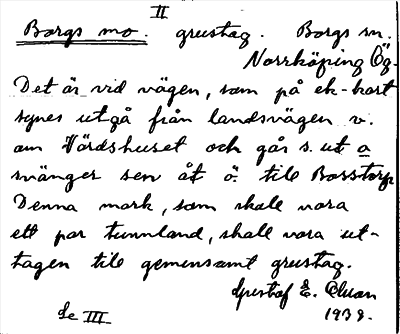 II
Borgs mo. grustag. Borgs sn.
Norrköping Ög.
Det är vid vägen, som på ek-kart
synes utgå från landsvägen v.
om Värdshuset och går s. ut o
svänger sen åt ö. till Borstorp
Denna mark, som skall vara
ett par tunnland, skall vara ut-
tagen till gemensamt grustag.
Gustaf E. Oluan
Se III 1938.